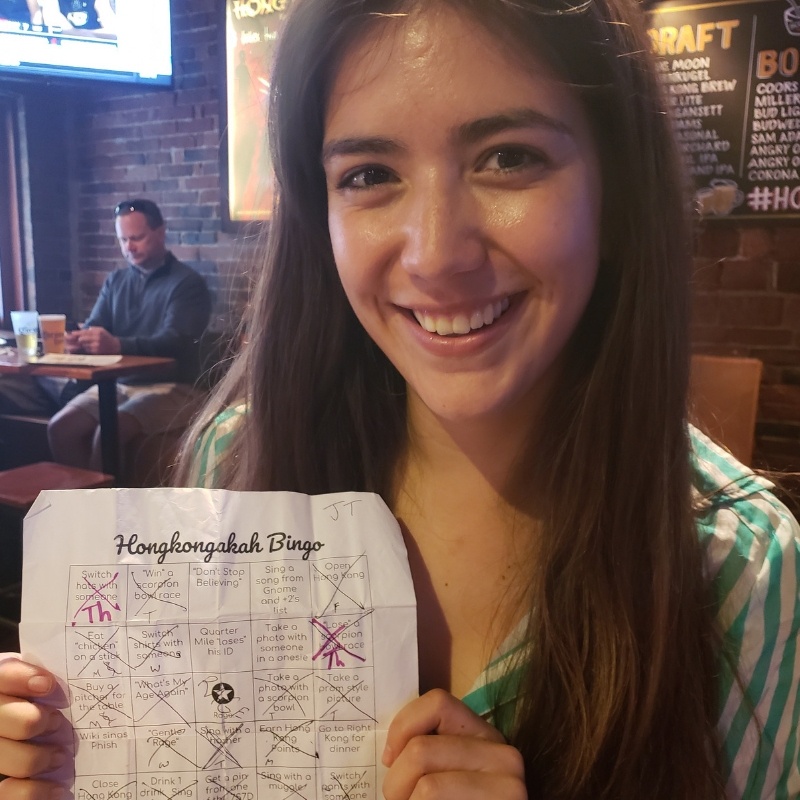 HONG
DRAFT
MOON
KRUGEL
KONG BREW
LITE
GANSETT
ADAMS
SEASONAL
ORCHARD
IPA
AND IPA
BO
COORS
MILLER
BUD LIG
BUDWEI
SAM ADA
ANGRY O
ANGRY O
CORONA
#HO
JT
Hongkongakah Bingo
Switch
hats with
someone
Th
"Win" a
scorpion
bowl race
T
"Don't Stop
Believing"
Sing a
song from
Gnome
and +2's
list
Open
Hong Kong
F
Eat
"chicken"
on a stick
M
Switch
shirts with
someone
W
Quarter
Mile "loses"
his ID
Take a
photo with
someone
in a onesie
"Lose" a
scorpion
bowl race
Th
Buy a
pitcher for
the table
M
"What's My
Age Again"
Rage
Take a
photo with
a scorpion
bowl
T
Take a
prom style
picture
T
Wiki sings
Phish
"Gentle"
Rage"
W
Sing with a
T
Earn Hong
Kong
Points
M
Go to Right
Kong for
dinner
Close
Hong Kong
Drink 1
drink, Sing
Get a pin
from one
of the
Sing with a
muggle
Switch
pants with
someone